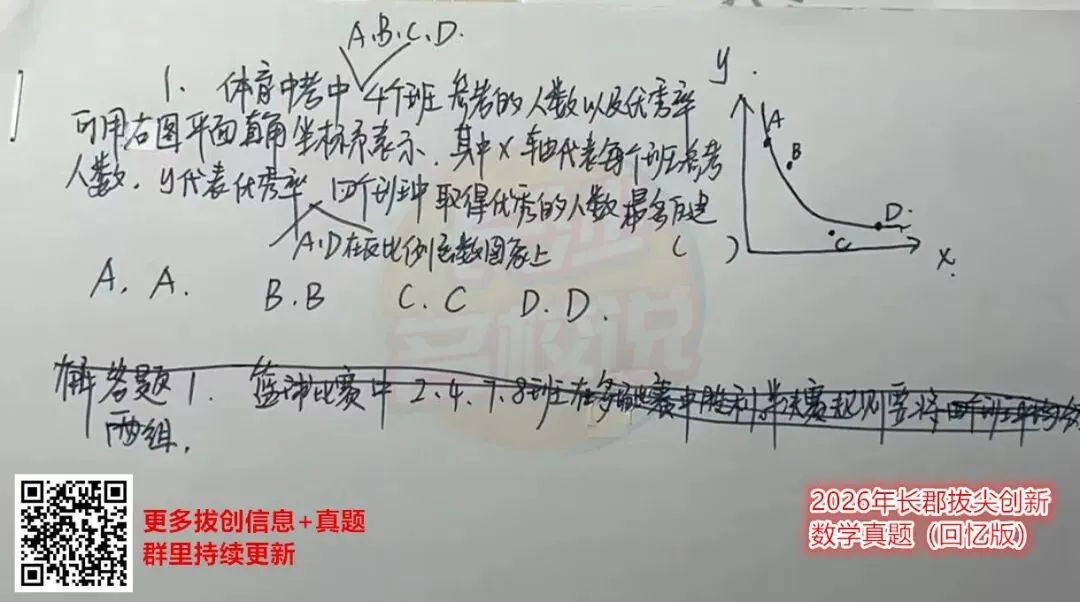 A.B.C.D.
1. 体育中考中4个班参考的人数以及优秀率
可用右图平面直角坐标系表示，其中x轴代表每个班参考
人数，y代表优秀率，四个班中取得优秀的人数最多的是
A.D在反比例函数图象上 ( )
y
A
B
C
D
x
A. A. B. B C. C D. D.
解答题1. 篮球比赛中2、4、7、8班在
两组.
更多拔创信息+真题
群里持续更新
2026年长郡拔尖创新
数学真题（回忆版）